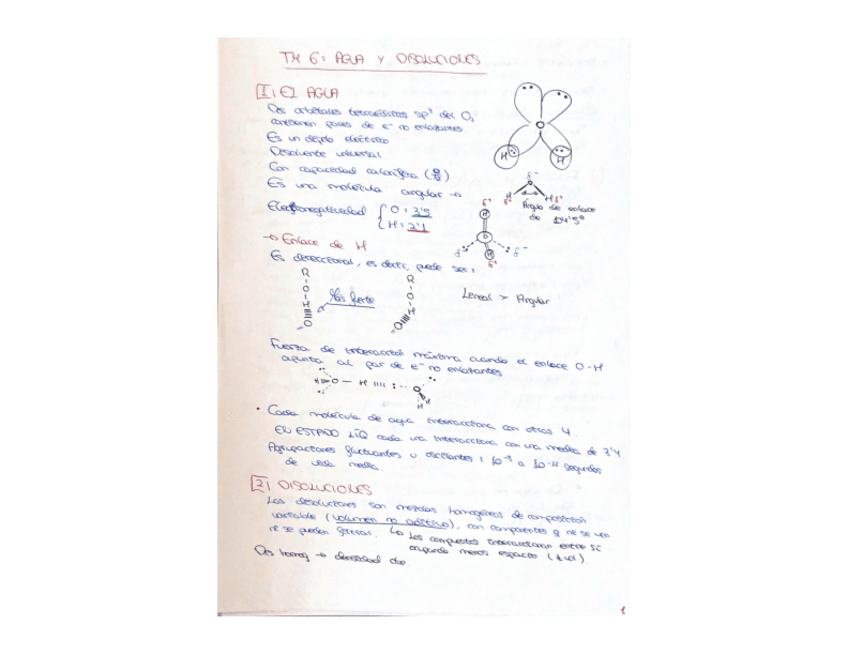 TM 6: AGUA Y DISOLUCIONES
1 | El AGUA
Dos orbitales tetraédricos sp³ del O,
contienen pares de e⁻ no enlazantes
Es un dipolo eléctrico
Disolvente universal
Con capacidad calorífica
Es una molécula angular →
Electronegatividad { O: 3'5
H: 2'1
Ángulo de enlace
de 104'5º
→ Enlace de H
Es direccional, es decir, puede ser:
Más fuerte
Lineal > Angular
Fuerza de interacción máxima cuando el enlace O-H
apunta al par de e⁻ no enlazantes
• Cada molécula de agua interacciona con otras 4.
EN ESTADO LÍQ cada una interacciona con una media de 3'4
Agrupaciones fluctuantes u oscilantes:
de vida media.
2 | DISOLUCIONES
Las disoluciones son mezclas homogéneas de composición
variable (volumen no aditivo), con componentes q ni se ven
ni se pueden filtrar. Los compuestos interaccionan entre sí
ocupando menos espacio (↓vol)
Dis homog → densidad cte.
1